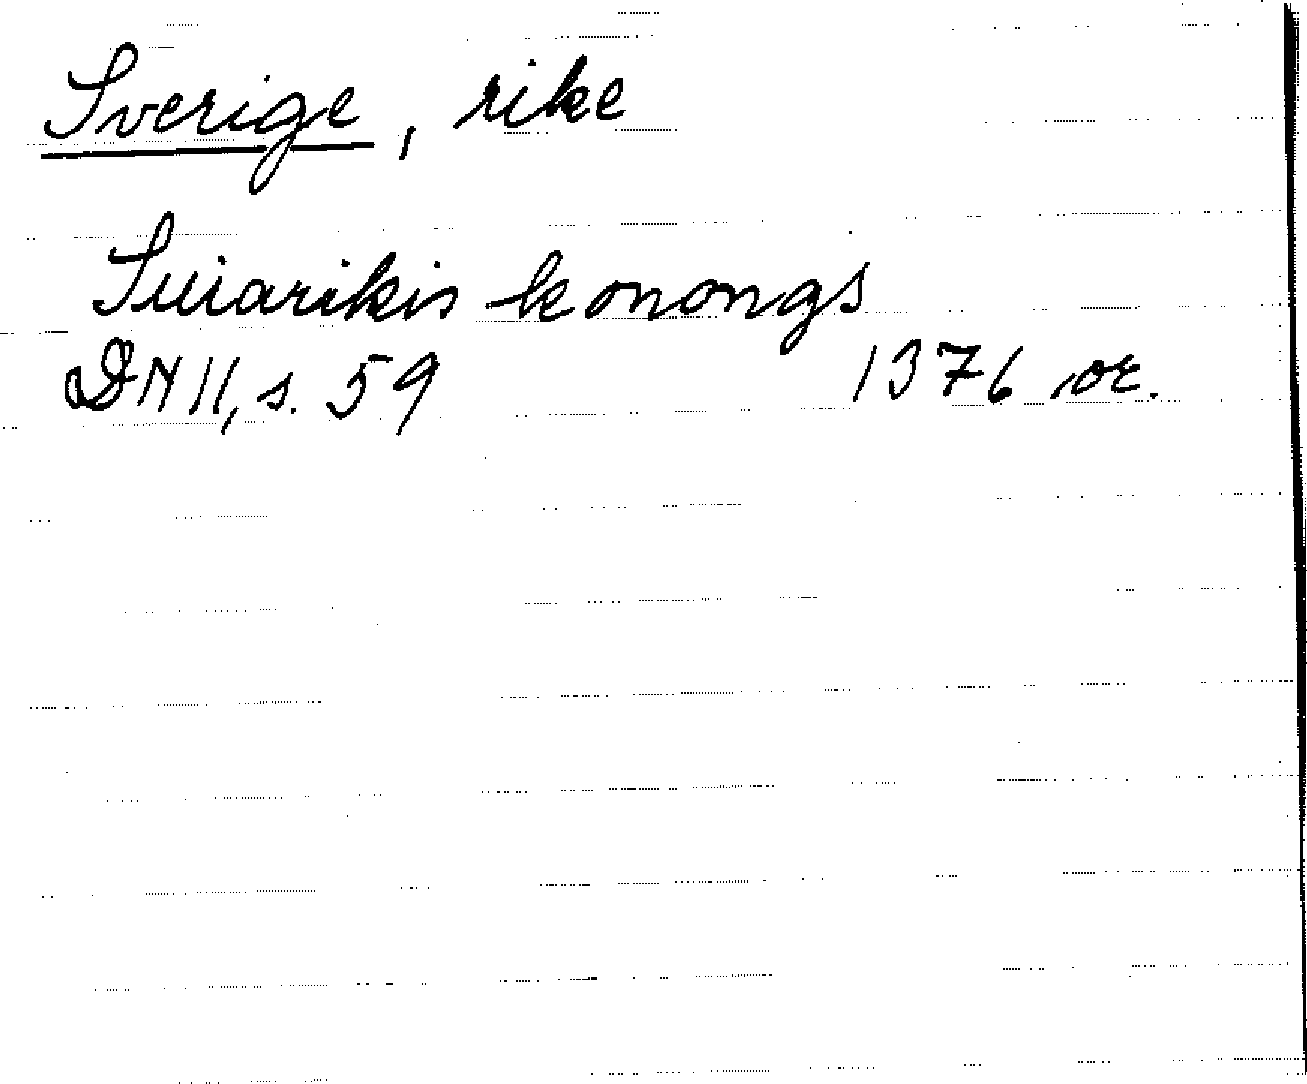 Sverige, rike
Suiarikis konongs
DN 11, s. 59 1376 or.